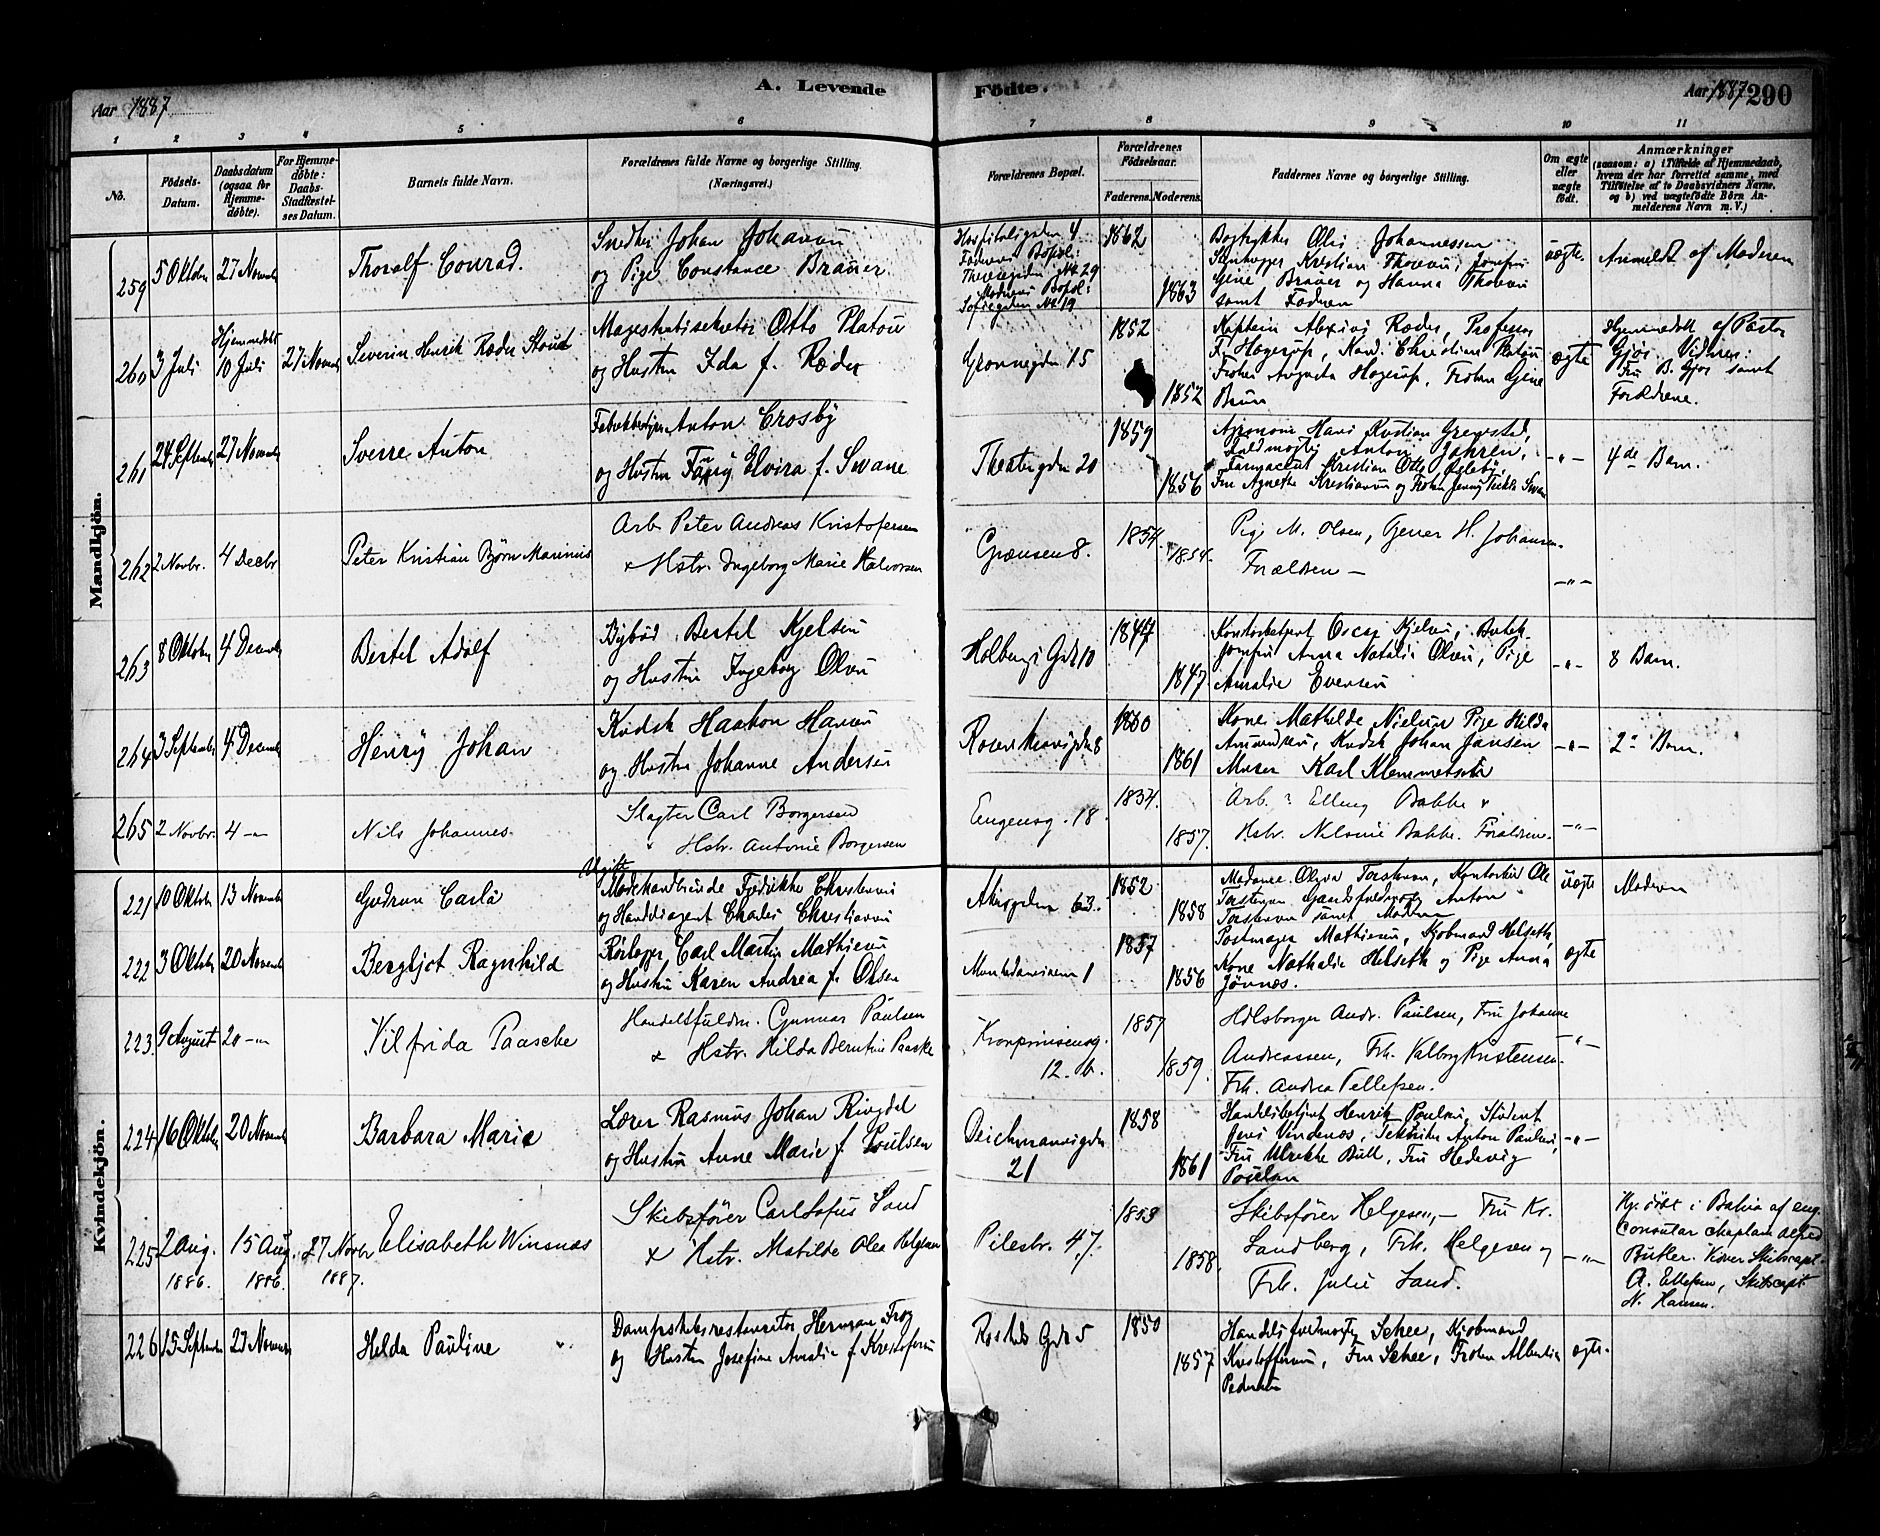 A. Levende Fødte.
Aar 1887
Aar 1887 290
1 2 3 4 5 6 7 8 9 10 11
No. Fødsels-Datum. Daabsdatum (ogsaa for Hjemmedøbte). For Hjemmedøbte: Daabs-Stadfæstelses Datum. Barnets fulde Navn. Forældrenes fulde Navne og borgerlige Stilling. (Næringsvei.) Forældrenes Bopæl. Forældrenes Fødselsaar. Faderens. Moderens. Faddernes Navne og borgerlige Stilling. Om ægte eller uægte født. Anmærkninger (saasom: a) i Tilfælde af Hjemmedaab, hvem der har forrettet samme, med Tilføielse af to Daabsvidners Navne, og b) ved uægtefødte Børn Anmelderens Navn m. V.)
Mandkjøn.
259 5 Oktober 27 Novemb Thoralf Conrad.
Snedker Johan Johansen
og Pige Constance Braüer
Hospitalsgaden 4
Faderens Bopæl:
Theresesgden No. 29
Moderens Bopæl:
Sofiesgden No. 19
1862
1863
Bogtrykker Olis Johannessen
Stenhugger Kristian Thoresen, Jomfru
Gine Braüer og Hanna Thoresen
samt Faderen
uægte. Anmeldt af Moderen
260 3 Juli Hjemmedøbt 10 Juli 27 Novemb Severin Henrik Ræder Stoud
Magistratssekretær Otto Platou
og Hustru Ida f. Ræder
Grønnegden 15
1852
1852
Kaptein Alexius Ræder, Professor
F. Hagerup, Kand. Christian Platou
Frøken Augusta Hagerup, Frøken Gine
Bruun
ægte
Hjemmedøbt af Pastor
Gjør. Vidner:
Fru B. Gjør samt
Forældrene.
261 24 Septemb 27 Novemb Sverre Anton
Fabrikbestyrer Anton Crosby
og Hustru Fanny Elvira f. Swane
Theatergden 20
1859
1856
Agronom Hans Kristian Grevstad,
Fuldmægtig Anton Jahren,
Farmaceut Kristian Otto Egeberg,
Fru Agnette Kristiansen og Frøken Jenny Thekla Swane
-"- 4de Barn.
262 2 Novbr. 4 Decbr Peter Kristian Bjørn Marinius
Arb. Peter Andreas Kristofersen
& Hstr. Ingeborg Marie Halvorsen
Grænsen 8.
1854.
1854.
Pige M. Olsen, Gjener H. Johansen.
Forældren —
-"-
263 8 Oktober 4 Decemb Bertel Adolf
Bybud Bertel Kjelsen
og Hustru Ingeborg Olsen
Holbergs Gde 10
1847
1847.
Kontorbetjent Oscar Kjelsen, Butik-
jomfru Anna Natalia Olsen, Pige
Amalie Evensen
-"- 8 Barn.
264 3 Septemb 4 Decemb Henry Johan
Kudsk Haakon Hansen
og Hustru Johanne Andersen
Rosenkransgden 8
1860
1861
Kone Mathilde Nielsen Pige Hilda
Amundsen, Kudsk Johan Jansen
Murer Karl Klemmetsen
-"- 2e Barn.
265 2 Novbr. 4 -"- Nils Johannes.
Slagter Carl Borgersen
" Hstr. Antonie Borgersen
Engensg. 18.
1834.
1857.
Arb. Elling Bakke &
Hstr. Nilsine Bakke. Forældren.
-"-
Kvindekjøn.
221 10 Oktober 13 Novemb Gudrun Carla
Ugifte
Modehandlende Fredrikke Christensen
og Handelsagent Charles Christiansen
Akersgden 63.
1852
1858
Madame Olava Torstensen, Kontorist Ole
Torstensen Gaardsfuldmægtig Anton
Torstensen samt Moderen
uægte Moderen
222 3 Oktober 20 Novemb Bergljot Ragnhild
Rørlægger Carl Martin Mathiesen
og Hustru Karen Andrea f. Olsen
Munkedamsveien 1
1857
1856
Postmager Mathiesen, Kjøbmand Helseth,
Kone Nathalie Helseth og Pige Anna
Jøvnes.
ægte
223. 9 August 20 -"- Vilfrida Paasche
Handelsfuldm. Gunnar Paulsen
& Hstr. Hilda Berntine Paaske
Kronprinsensg.
12. b.
1857
1859.
Hdlsborger Andr. Paulsen, Fru Johanne
Andreassen, Frk. Valborg Kristensen.
Frk. Andrea Tellefsen.
-"-
224 16 Oktober 20 Novemb Barbara Marie
Lærer Rasmus Johan Ringdal
og Hustru Anne Marie f. Poulsen
Deichmansgden
21
1858
1861
Handelsbetjent Henrik Poulsen, Student
Jens Vindenes, Tekniker Anton Paulsen,
Fru Ulrikke Bull, Fru Hedevig
Poulsen
-"-
225 2 Aug. 1886. 15 Aug. 1886. 27 Novbr 1887. Elisabeth Winsnæs
Skibsfører Carl Sofus Sand
& Hstr. Matilde Olea Helgesen
Pilestr. 47.
1853
1858.
Skibsfører Helgesen, — Fru Kr.
Sandberg, Frk. Helgesen og
Frk. Julie Sand.
-"-
Hj. døbt i Bahia af eng.
Consular chaplain Alfred
Butler. Vidner Skibscapt.
A. Ellefsen, Skibscapt.
N. Hansen.
226 15 Septemb 27 Novemb Helda Pauline
Dampskibsrestauratør Herman Frog
og Hustru Josefine Amalie f. Kristofersen
Rosteds Gde 5
1850
1857
Handelsfuldmægtig Schee, Kjøbmand
Kristoffersen, Fru Schee, Frøken Albertin
Pedersen
ægte.